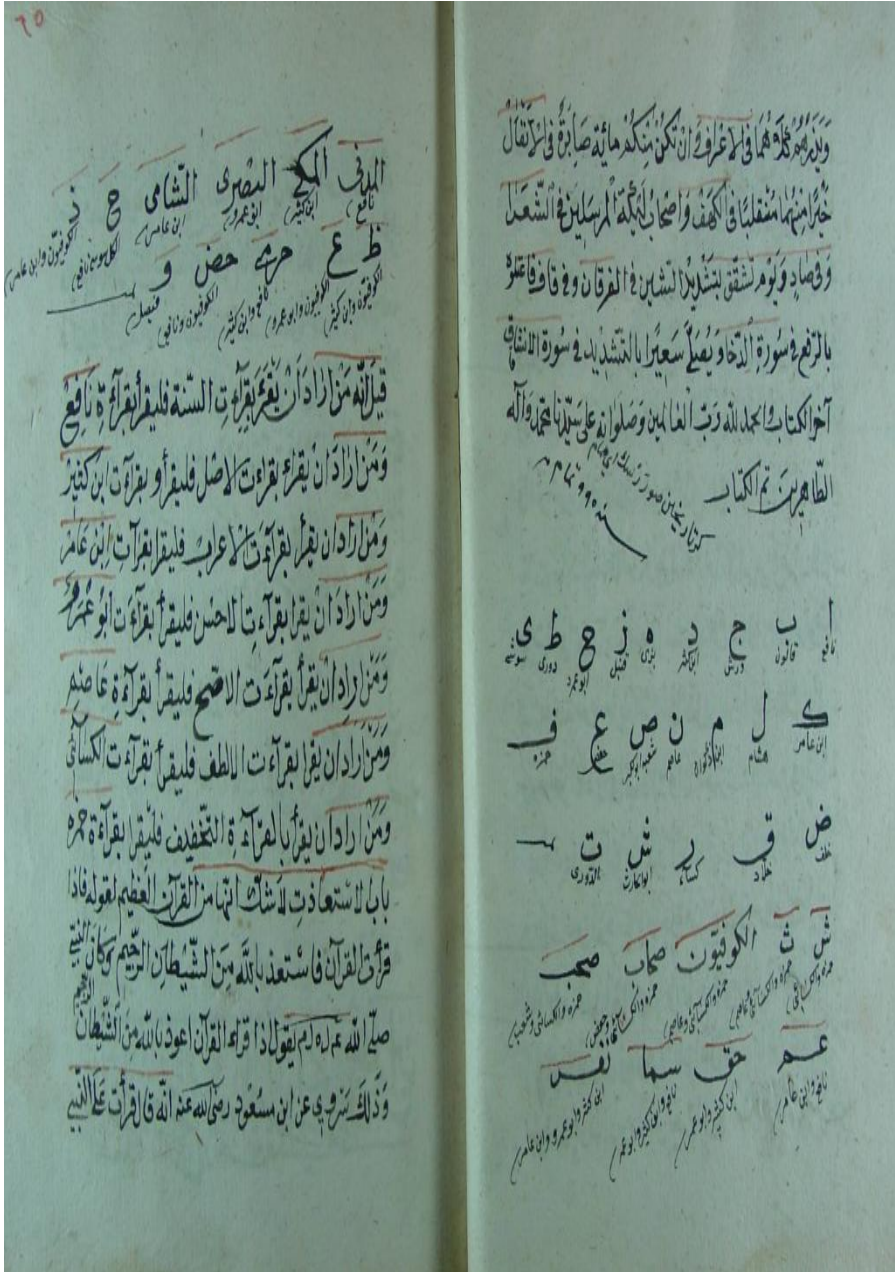 ويذرهم هما في الاعراف وان تكن منكم مائة صابرة في الانفال
خيرا منهما منقلبا في الكهف واصحاب لئيكة المرسلين في الشعرا
وفي صاد ويوم تشقق بتشديد الشين في الفرقان وفي قاف فاعتلوه
بالرفع في سورة الدخان ويصلى سعيرا بالتشديد في سورة الانشقاق
آخر الكتاب والحمد لله رب العالمين وصلواته على سيدنا محمد وآله
الطاهرين تم الكتاب
سنه ٩٩٥
ا ب ج د ه ز ح ط ى
نافع قالون ورش ابن كثير بزى قنبل ابو عمرو دورى سوسى
ك ل م ن ص ع ف
ابن عامر هشام ابن ذكوان عاصم شعبه ابو بكر حفص حمزه
ض ق ر ش ت
خلف خلاد كسائى ابو الحارث الدورى
ش ث الكوفيون صحاب صحب
حمزه والكسائى حمزه والكسائى وعاصم حمزه والكسائى وحفص حمزه والكسائى وشعبه
عم حق سما نفر
نافع وابن عامر ابن كثير وابو عمرو نافع وابن كثير وابو عمرو ابن كثير وابو عمرو وابن عامر
٦٥
المدنى المكى البصرى الشامى ج ذ
نافع ابن كثير ابو عمرو ابن عامر الكل سوى نافع الكوفيون وابن عامر
ظ غ حرمى حصن و
الكوفيون وابن كثير الكوفيون وابو عمرو نافع وابن كثير الكوفيون ونافع فيصل
قيل انه من اراد ان يقرء بقراءت السنة فليقرأ بقراءة نافع
ومن اراد ان يقراء بقراءت الاصل فليقرأ و بقراءت ابن كثير
ومن اراد ان يقرأ بقراءت الاعراب فليقرا بقرآت ابن عامر
ومن اراد ان يقرا بقراءت الاحسن فليقرأ بقراءت ابو عمرو
ومن اراد ان يقرأ بقراءت الافصح فليقرأ بقراءة عاصم
ومن اراد ان يقرا بقراءت الالطف فليقرأ بقراءت الكسائى
ومن اراد ان يقرأ بالقراءة التخفيف فليقرا بقراءة حمزه
باب الاستعاذت لا شك انها من القرآن العظيم لقوله فاذا
قرأت القرآن فاستعذ بالله من الشيطان الرجيم وكان النبى
صلى الله يقول اذا قراء القرآن اعوذ بالله من الشيطان الرجيم
وذلك مروي عن ابن مسعود رضى الله عنه انه قال قرأت على النبى